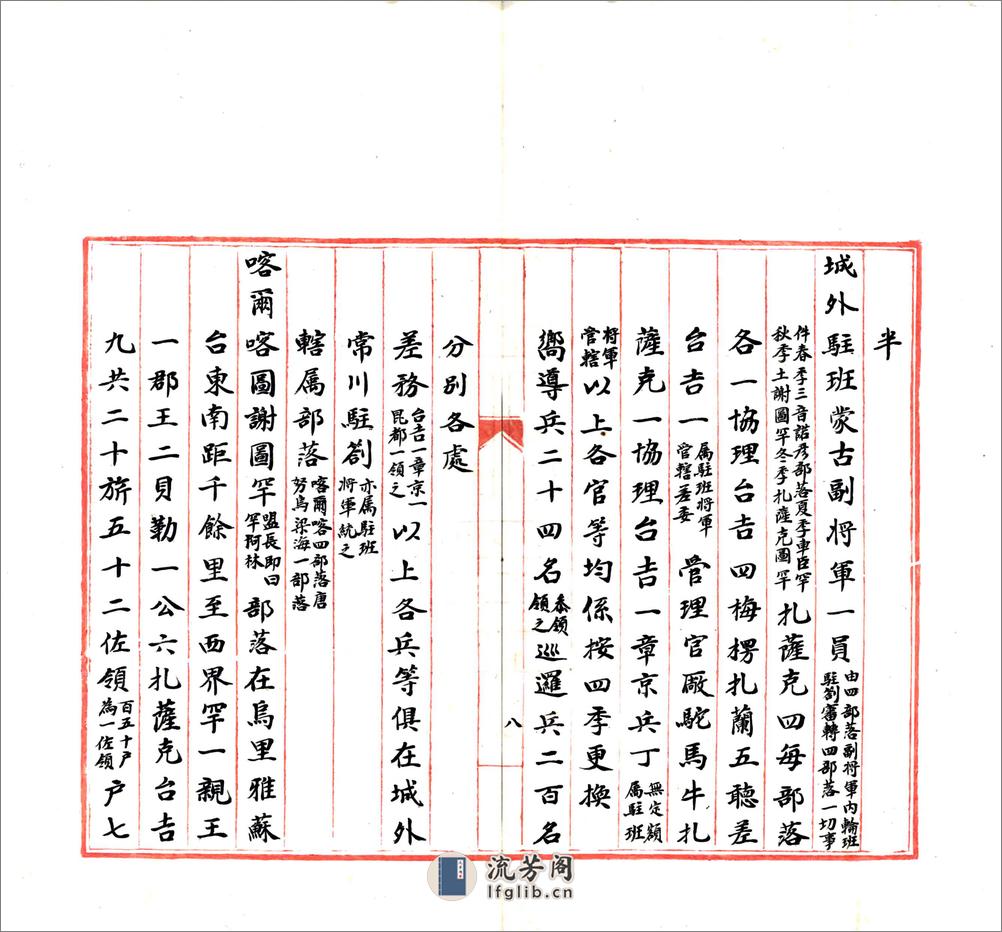 半
城外駐班蒙古副將軍一員由四部落副將軍內輪班駐劄審轉四部落一切事
件春季三音諾彥部落夏季車臣罕秋季土謝圖罕冬季扎薩克圖罕扎薩克四每部落
各一協理台吉四梅楞扎蘭五聽差
台吉一属駐班將軍管轄差委管理官厰駝馬牛扎
薩克一協理台吉一章京兵丁無定額属駐班
將軍管轄以上各官等均係按四季更換
嚮導兵二十四名叅領領之巡邏兵二百名
八
分別各處
差務台吉一章京一昆都一領之以上各兵等俱在城外
常川駐劄亦属駐班將軍統之
轄属部落喀爾喀四部落唐努烏梁海一部落
喀爾喀圖謝圖罕盟長即曰罕阿林部落在烏里雅蘇
台東南距千餘里至西界罕一親王
一郡王二貝勒一公六扎薩克台吉
九共二十旂五十二佐領百五十户為一佐領户七
流芳阁
lfglib.cn